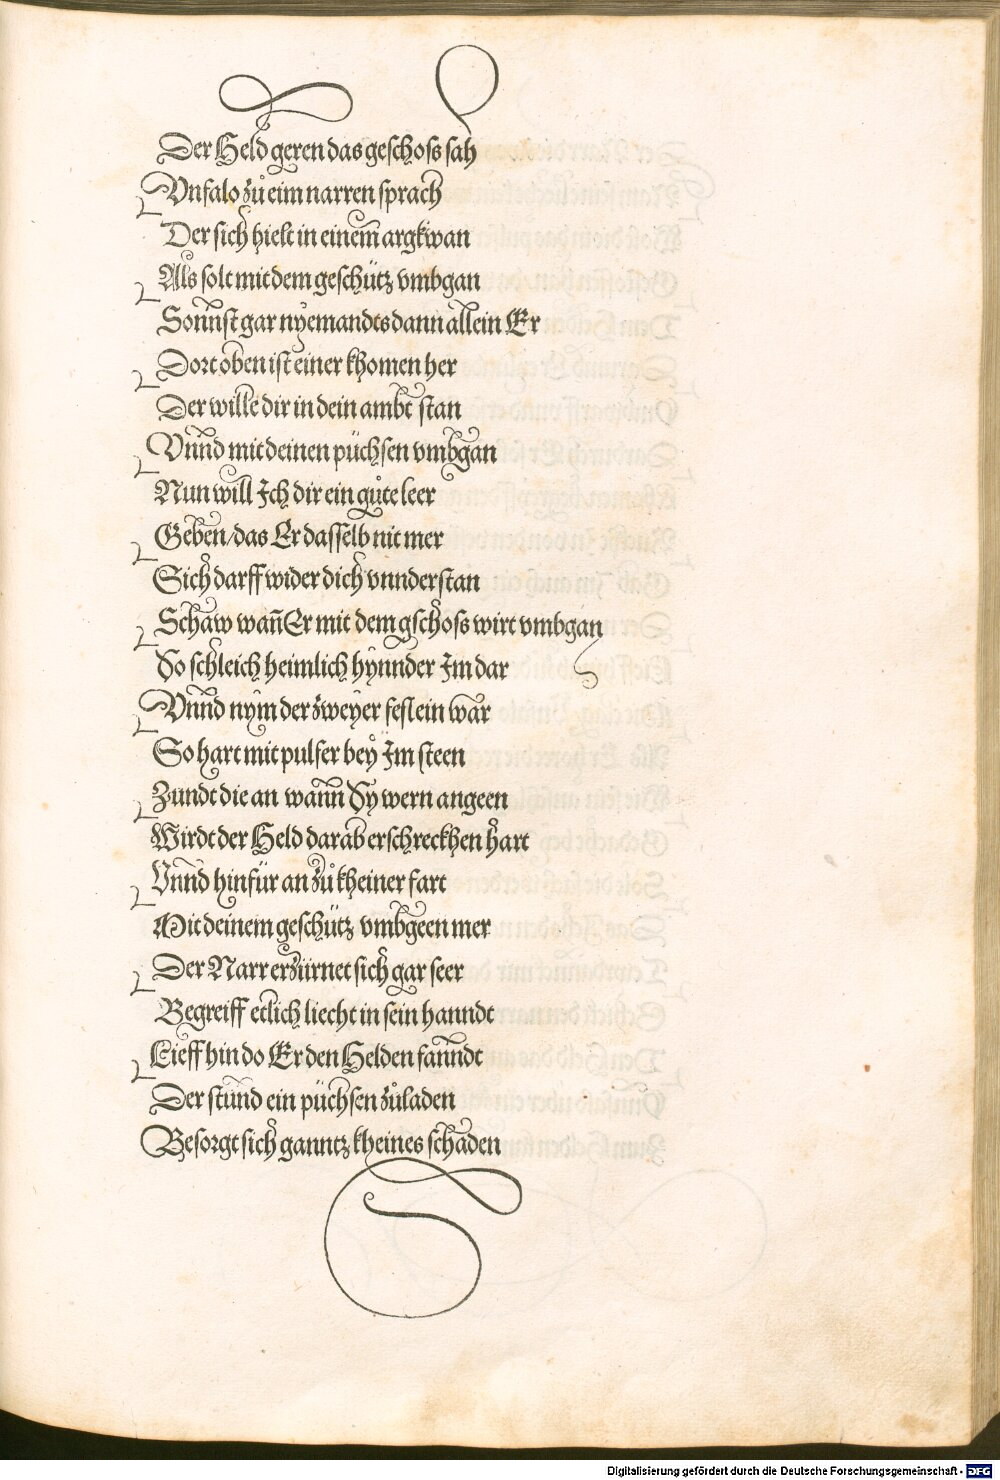 Der Held geren das geschoss sah
Vnfalo zů eim narren sprach
Der sich hielt in einem argkwan
Als solt mit dem geschütz vmbgan
Sonnst gar nyemandts dann allein Er
Dort oben ist einer khomen her
Der wille dir in dein ambt stan
Vnnd mit deinen püchsen vmbgan
Nun will Ich dir ein gůte leer
Geben/das Er dasselb nit mer
Sich darff wider dich vnnderstan
Schaw wañ Er mit dem gschoss wirt vmbgan
So schleich heimlich hynnder Im dar
Vnnd nym der zweyer feslein war
So hart mit pulfer bey Im steen
Zundt die an wann Sy wern angeen
Wirdt der Held darab erschreckhen hart
Vnnd hinfür an zů kheiner fart
Mit deinem geschütz vmbgeen mer
Der Narr erzürnet sich gar seer
Begreiff etlich liecht in sein hanndt
Lieff hin do Er den Helden fanndt
Der stund ein püchsen zůladen
Besorgt sich ganntz kheines schaden
Digitalisierung gefördert durch die Deutsche Forschungsgemeinschaft - DFG